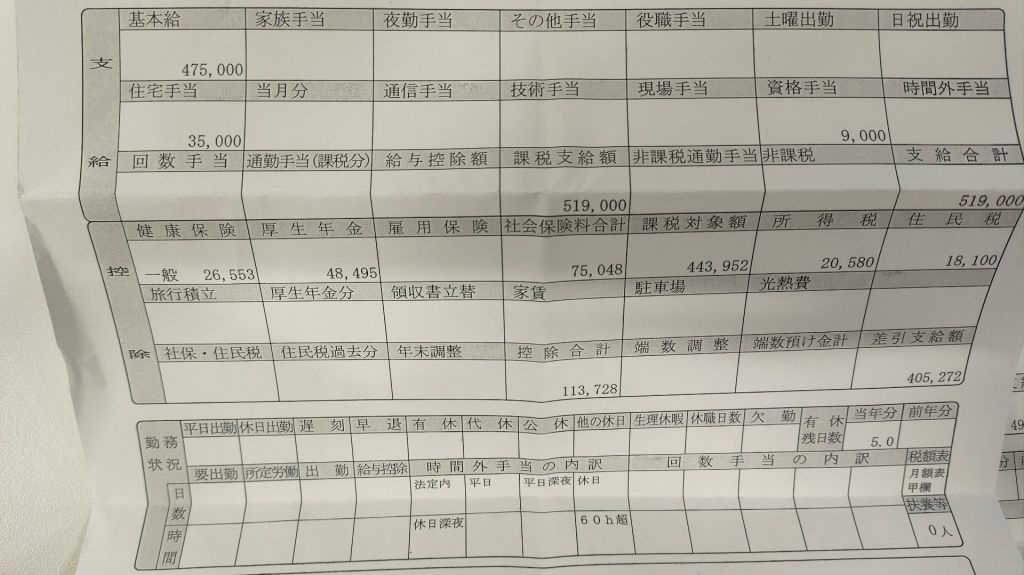 基本給 家族手当 夜勤手当 その他手当 役職手当 土曜出勤 日祝出勤
支
475,000
住宅手当 当月分 通信手当 技術手当 現場手当 資格手当 時間外手当
35,000 9,000
給 回数手当 通勤手当(課税分) 給与控除額 課税支給額 非課税通勤手当 非課税 支給合計
519,000 519,000
健康保険 厚生年金 雇用保険 社会保険料合計 課税対象額 所得税 住民税
控 一般 26,553 48,495 75,048 443,952 20,580 18,100
旅行積立 厚生年金分 領収書立替 家賃 駐車場 光熱費
除 社保・住民税 住民税過去分 年末調整 控除合計 端数調整 端数預け金計 差引支給額
113,728 405,272
勤務状況 平日出勤 休日出勤 遅刻 早退 有休 代休 公休 他の休日 生理休暇 休職日数 欠勤 有休残日数 当年分 前年分
5.0
要出勤 所定労働 出勤 給与控除 時間外手当の内訳 回数手当の内訳 税額表
日数 法定内 平日 平日深夜 休日 月額表
甲欄
扶養等
時間 休日深夜 60h超 0人
49